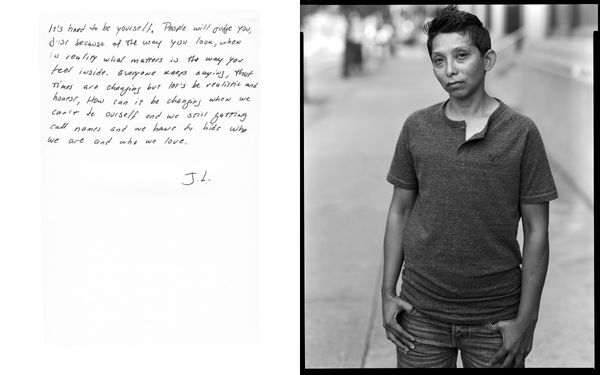 It's hard to be yourself. People will judge you,
just because of the way you look, when
in reality what matters is the way you
feel inside. Everyone keeps saying, that
times are changing but let's be realistic and
honest, How can it be changing when we
can't be ourself and we still getting
call names and we have to hide who
we are and who we love.
J.L.